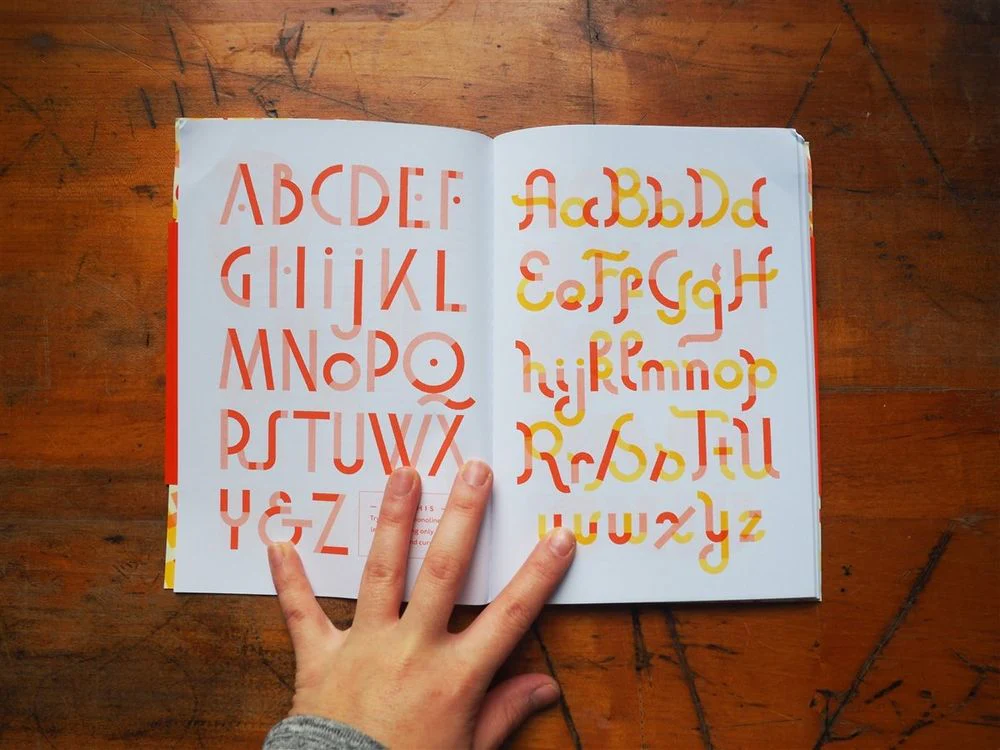 ABCDEF
GHijKL
MNoPQ
RSTUWX
Y&Z
Try
only
AaBbDd
EeFfGgH
hijklmnop
RrSsTtU
uvwxyz